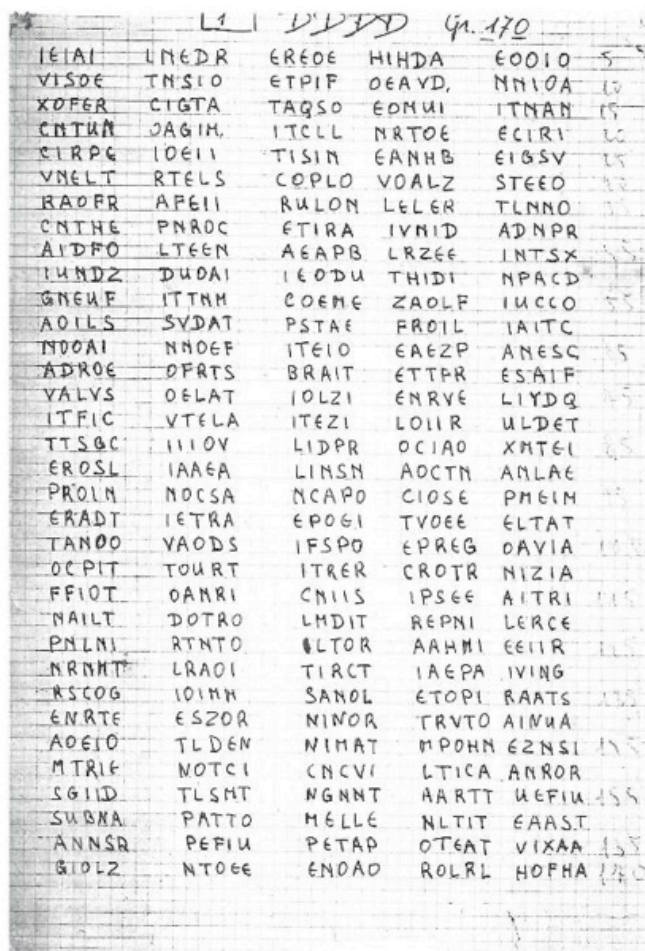 1 DDDD Gr. 170
IEIAI LNEDR EREOE HIHDA EOOIO 5
VISOE TNSIO ETPIF OEAVD. NNIOA 10
XOFER CIGTA TAQSO EOMUI ITNAN 15
CNTUN OAGIM. ITCLL NRTOE ECIRI
CIRPE IOEII TISIN EANHB EIGSV
VNELT RTELS COPLO VOALZ STEEO
RAOFR AFEII RULON LELER TLNNO
CNTHE PNROC ETIRA IVNID ADNPR
AIDFO LTEEN AEAPB LRZEE INTSX
IUNDZ DUOAI IEODU THIDI NPACD
GNEUF ITTNM COEME ZAOLF IUCCO 55
AOILS SVDAT PSTAE FROIL IAITC
NDOAI NNOEF ITEIO EAEZP ANESC
ADROE OFRTS BRAIT ETTPR ESAIF
VALVS OELAT IOLZI ENRVE LIYDQ
ITFIC VTELA ITEZI LOIIR ULDET
TTSGC IIIOV LIDPR OCIAO XNTEI
EROSL IAAEA LINSN AOCTN ANLAE
PROIN NOCSA NCAPO CIOSE PMEIM
ERADT IETRA EPOGI TVOEE ELTAT
TANOO VAODS IFSPO EPREG OAVIA
OCPIT TOURT ITRER CROTR NIZIA
FFIOT OANRI CNIIS IPSEE AITRI 115
NAILT DOTRO LMDIT REPNI LERCE
PNLNI RTNTO ILTOR AAHMI EEIIR
NRNMT LRAOI TIRCT IAEPA IVING
RSCOG IOIMM SANOL ETOPI RAATS 135
ENRTE ESZOR NINOR TRVTO AINUA
AOEIO TLDEN NIMAT MPOHN EZNSI
MTRIE NOTCI CNCVI LTICA ANROR
SGIID TLSMT NGNNT AARTT UEFIU 155
SUBNA PATTO MELLE NLTIT EAAST
ANNSR PEFIU PETAP OTEAT VIXAA
GIOLZ NTOEE ENDAO ROLRL HOFHA 170